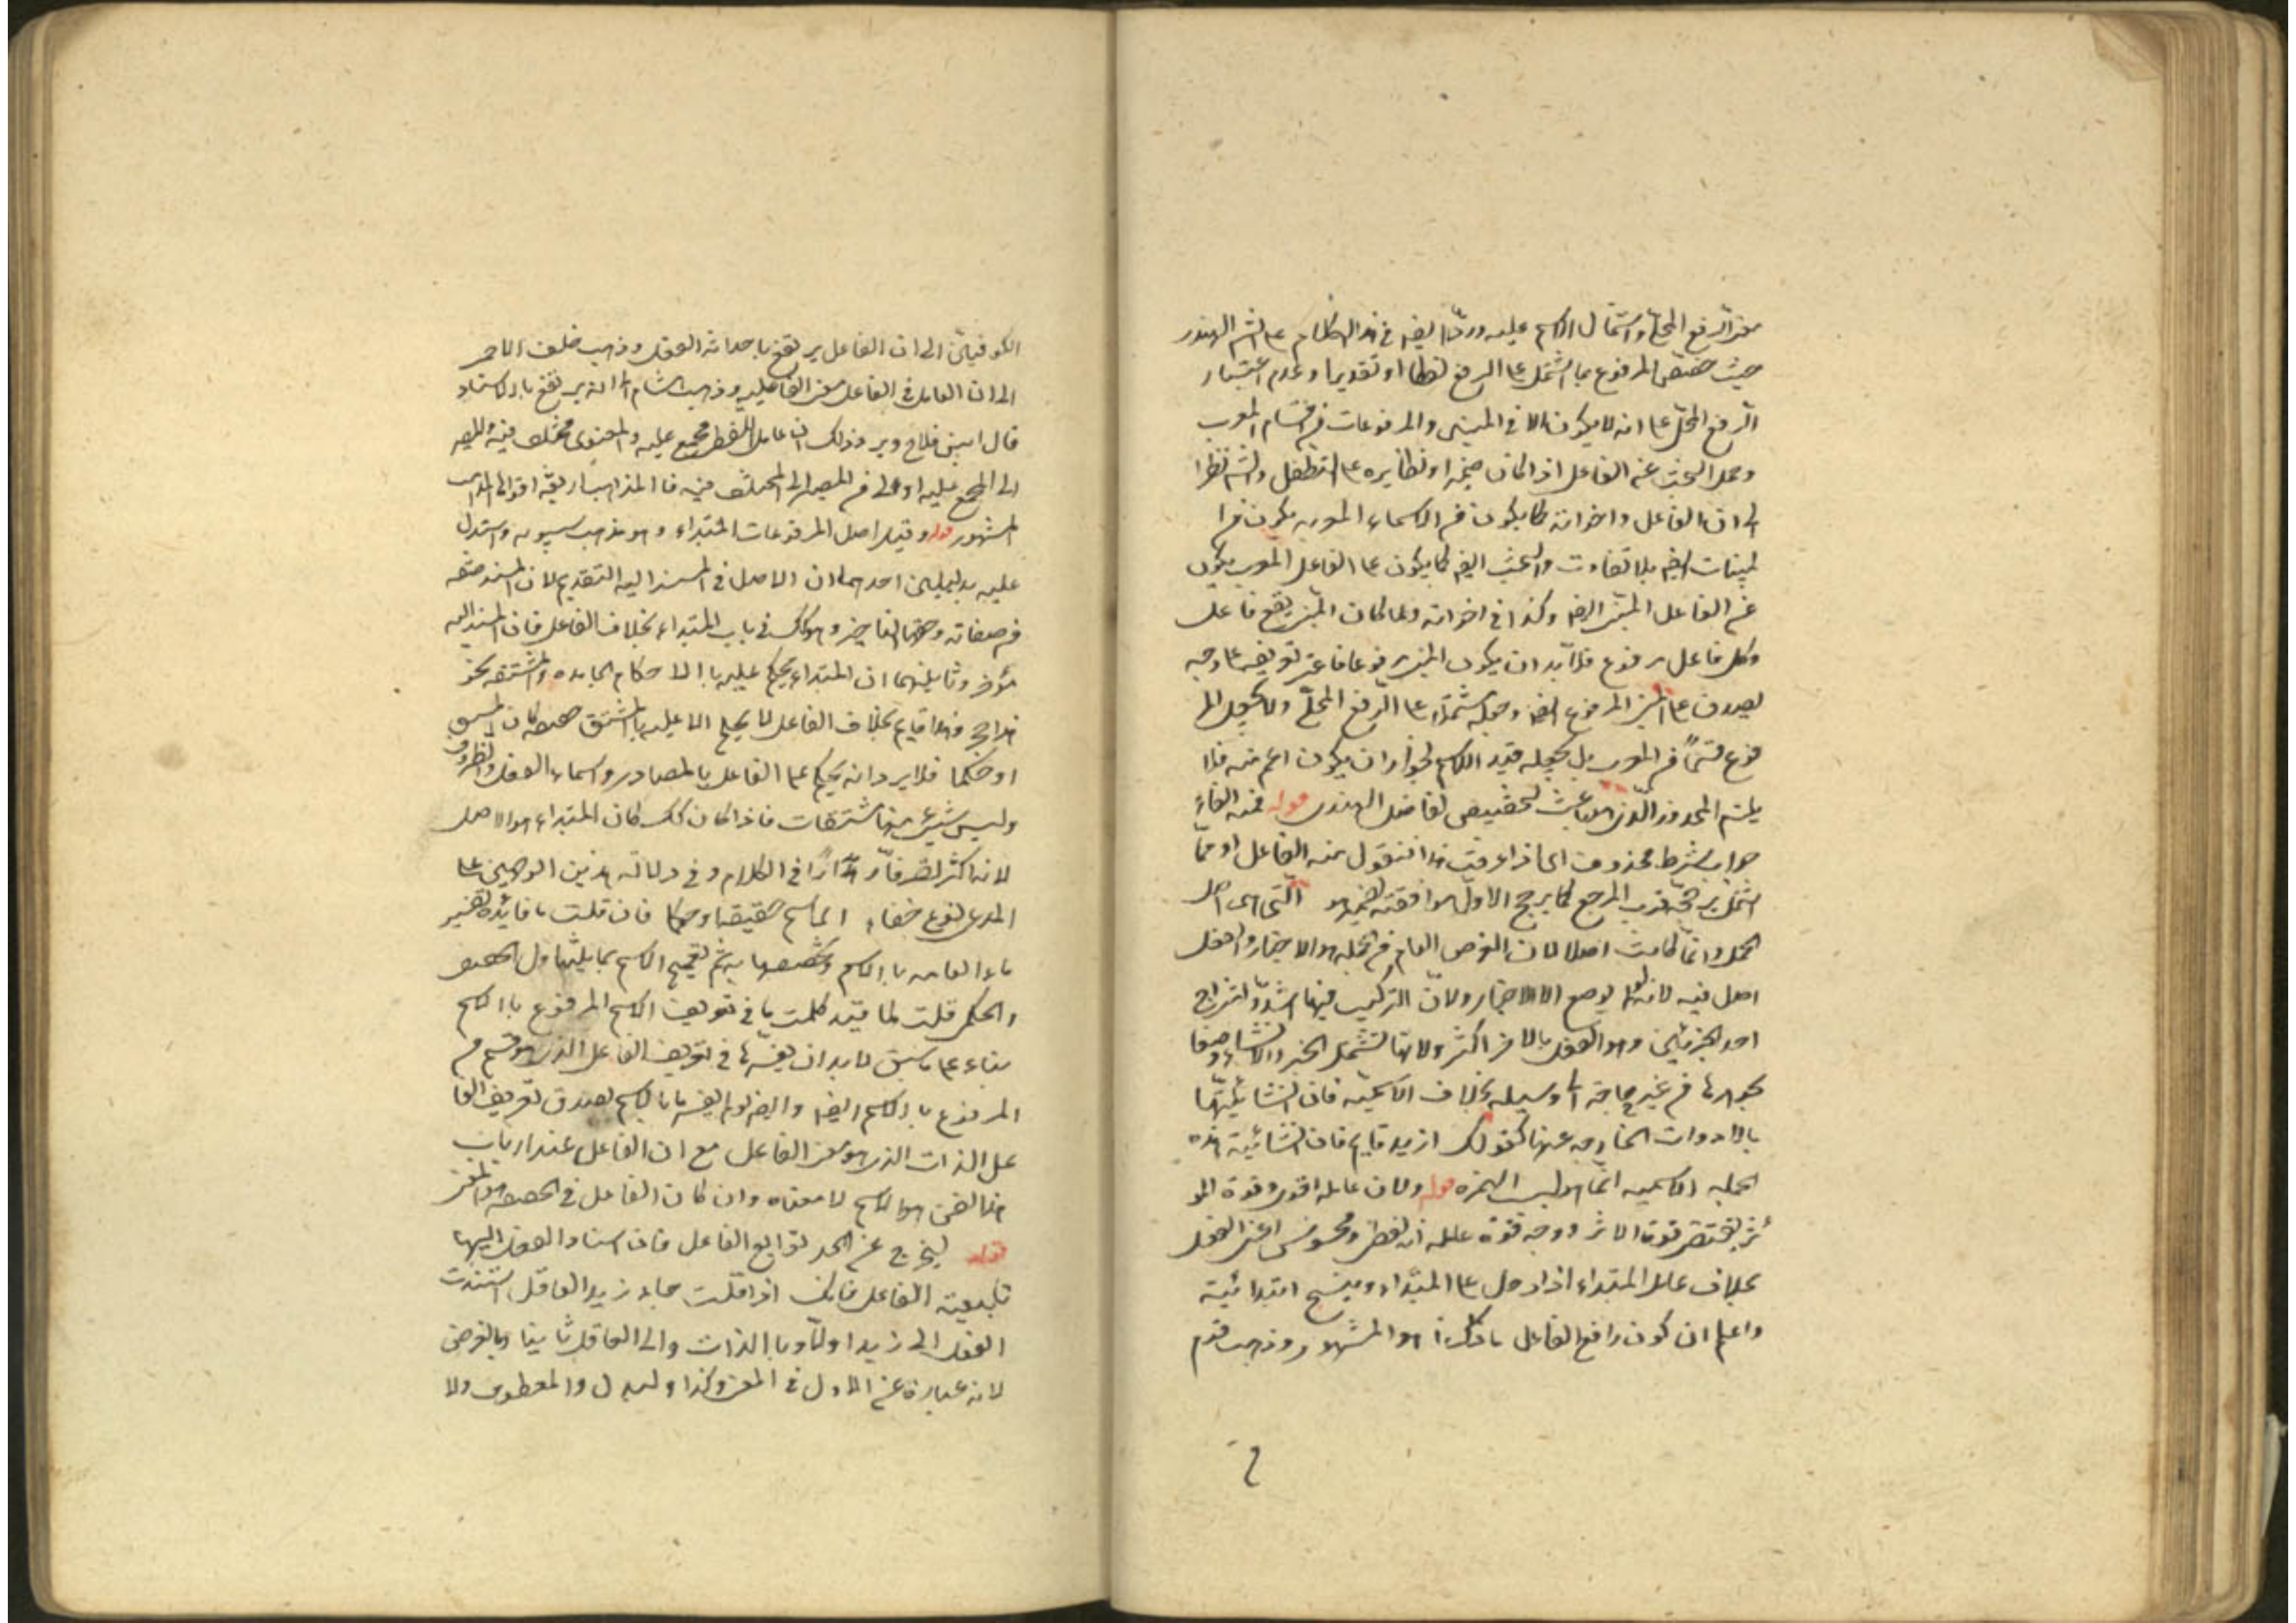 معنى الرفع المحلي واشتمال الاسم عليه وردّ ايضا في هذا الكلام على الشم الهندى
حيث خصص المرفوع بما اشتمل على الرفع لفظا او تقديرا وعدم اعتبار
الرفع المحلى على انه لا يكون الا في المبنى والمرفوعات من اقسام المعرب
وحمل البحث عن الفاعل اذا كان ضميرا ونظايره على التطفل والشم نظرا
الى ان الفاعل واخواته كما يكون من الاسماء المعربه يكون من ا
لمبنيات ايضه بلا تفاوت والبحث ايضه كما يكون على الفاعل المعرب يكون
عن الفاعل المبنى ايضه وكذا في اخواته ولما كان المبنى يقع فاعلا
وكل فاعل مرفوع فلا بد ان يكون المبنى مرفوعا تعريفه على وجه
يصدق على المبنى المرفوع ايضه وجعله مشتملا على الرفع المحلى ولا يجعل المر
فوع قسما من المعرب بل يجعله قيد الاسم لجواز ان يكون اعم منه فلا
يلزم المحذور الذى هو باعث لتخصيص الفاضل الهندى قوله فمنه الفاء
جواب شرط محذوف اى اذا عرفت هذا فنقول منه الفاعل او مما
اشتمل يرجحه قرب المرجع كما يرجح الاول موافقته لضمير هو التى هى اصل
الجمل وانما كانت اصلا لان الغرض العام من الجمله هو الاخبار والفعل
اصل فيه لانه لم يوضع الا للاخبار ولان التركيب فيها اشد لاستلزام
احد الجزئين وهو الفعل بالاخر اكثر ولانها تشتمل الخبر والانشاء وضعا
بجوهرها من غير حاجة الى وسيله بخلاف الاسميه فان انشائيتها
بالادوات الخارجه عنها كقولك ازيد قايم فان انشائية هذه
الجمله الاسميه انما هو بسبب الهمزه قوله ولان عامله اقوى وقوة المو
ثر يقتضى قوة الاثر ووجه قوة عامله انه لفظى ومحسوس اعنى الفعل
بخلاف عامل المبتداء اذا دخل على المبتداء وينسخ ابتدائيته
واعلم ان كون رافع الفاعل ما ذكرنا هو المشهور وذهب قوم
الكوفيين الى ان الفاعل يرتفع باحداثه الفعل وذهب خلف الاحمر
الى ان العامل في الفاعل معنى الفاعليه وذهب هشام الى انه يرتفع بالاسناد
قال ابن فلاح ويرد ذلك ان عامل اللفظى مجمع عليه والمعنوى مختلف فيه والمصير
الى المجمع عليه اولى من المصير الى المختلف فيه فالمذاهب اربعة اقواها المذهب
المشهور قوله وقيل اصل المرفوعات المبتداء وهو مذهب سيبويه واستدل
عليه بدليلين احدهما ان الاصل في المسند اليه التقديم لان المسند صفه
من صفاته وحقها التاخير وهو كك في باب المبتداء بخلاف الفاعل فان المسند اليه
مؤخر وثانيهما ان المبتداء يحكم عليه بالاحكام الجامده والمشتقه نحو
هذا حجر وهذا قايم بخلاف الفاعل لا يحكم الا عليه بالمشتق حقيقه كان المشتق
او حكما فلا يرد انه يحكم على الفاعل بالمصادر واسماء الفعل والظروف
وليس شيئ منها مشتقات فاذا كان كك كان المبتداء هو الاصل
لانه اكثر تصرفا في الكلام وفي دلالة هذين الوجهين على
المدعى نوع خفاء اى اسم حقيقه او حكما فان قلت ما فائدة تفسير
ماء العامه بالاسم وتخصيصها به ثم تعميم الاسم بما يتناول الحقيقى
والحكمى قلت لما قيد كلمت ما في تعريف الاسم المرفوع بالاسم
بناء على ما سبق لا بد ان يفسرها في تعريف الفاعل الذى هو قسم من
المرفوع بالاسم ايضه وايضه لو لم يفسرها بالاسم لصدق تعريف الفا
عل الذات الذى هو معنى الفاعل مع ان الفاعل عند ارباب
هذا الفن هو الاسم لا معناه وان كان الفاعل في الحقيقه هو المعنى
قوله ليخرج عن الحد توابع الفاعل فان اسناد الفعل اليها
تابعية الفاعل فانك اذا قلت جاء زيد العاقل اسندت
الفعل الى زيد اولا وبالذات والى العاقل ثانيا وبالعرض
لانه عبارة عن الاول في المعنى وكذا ولبدل والمعطوف ولا